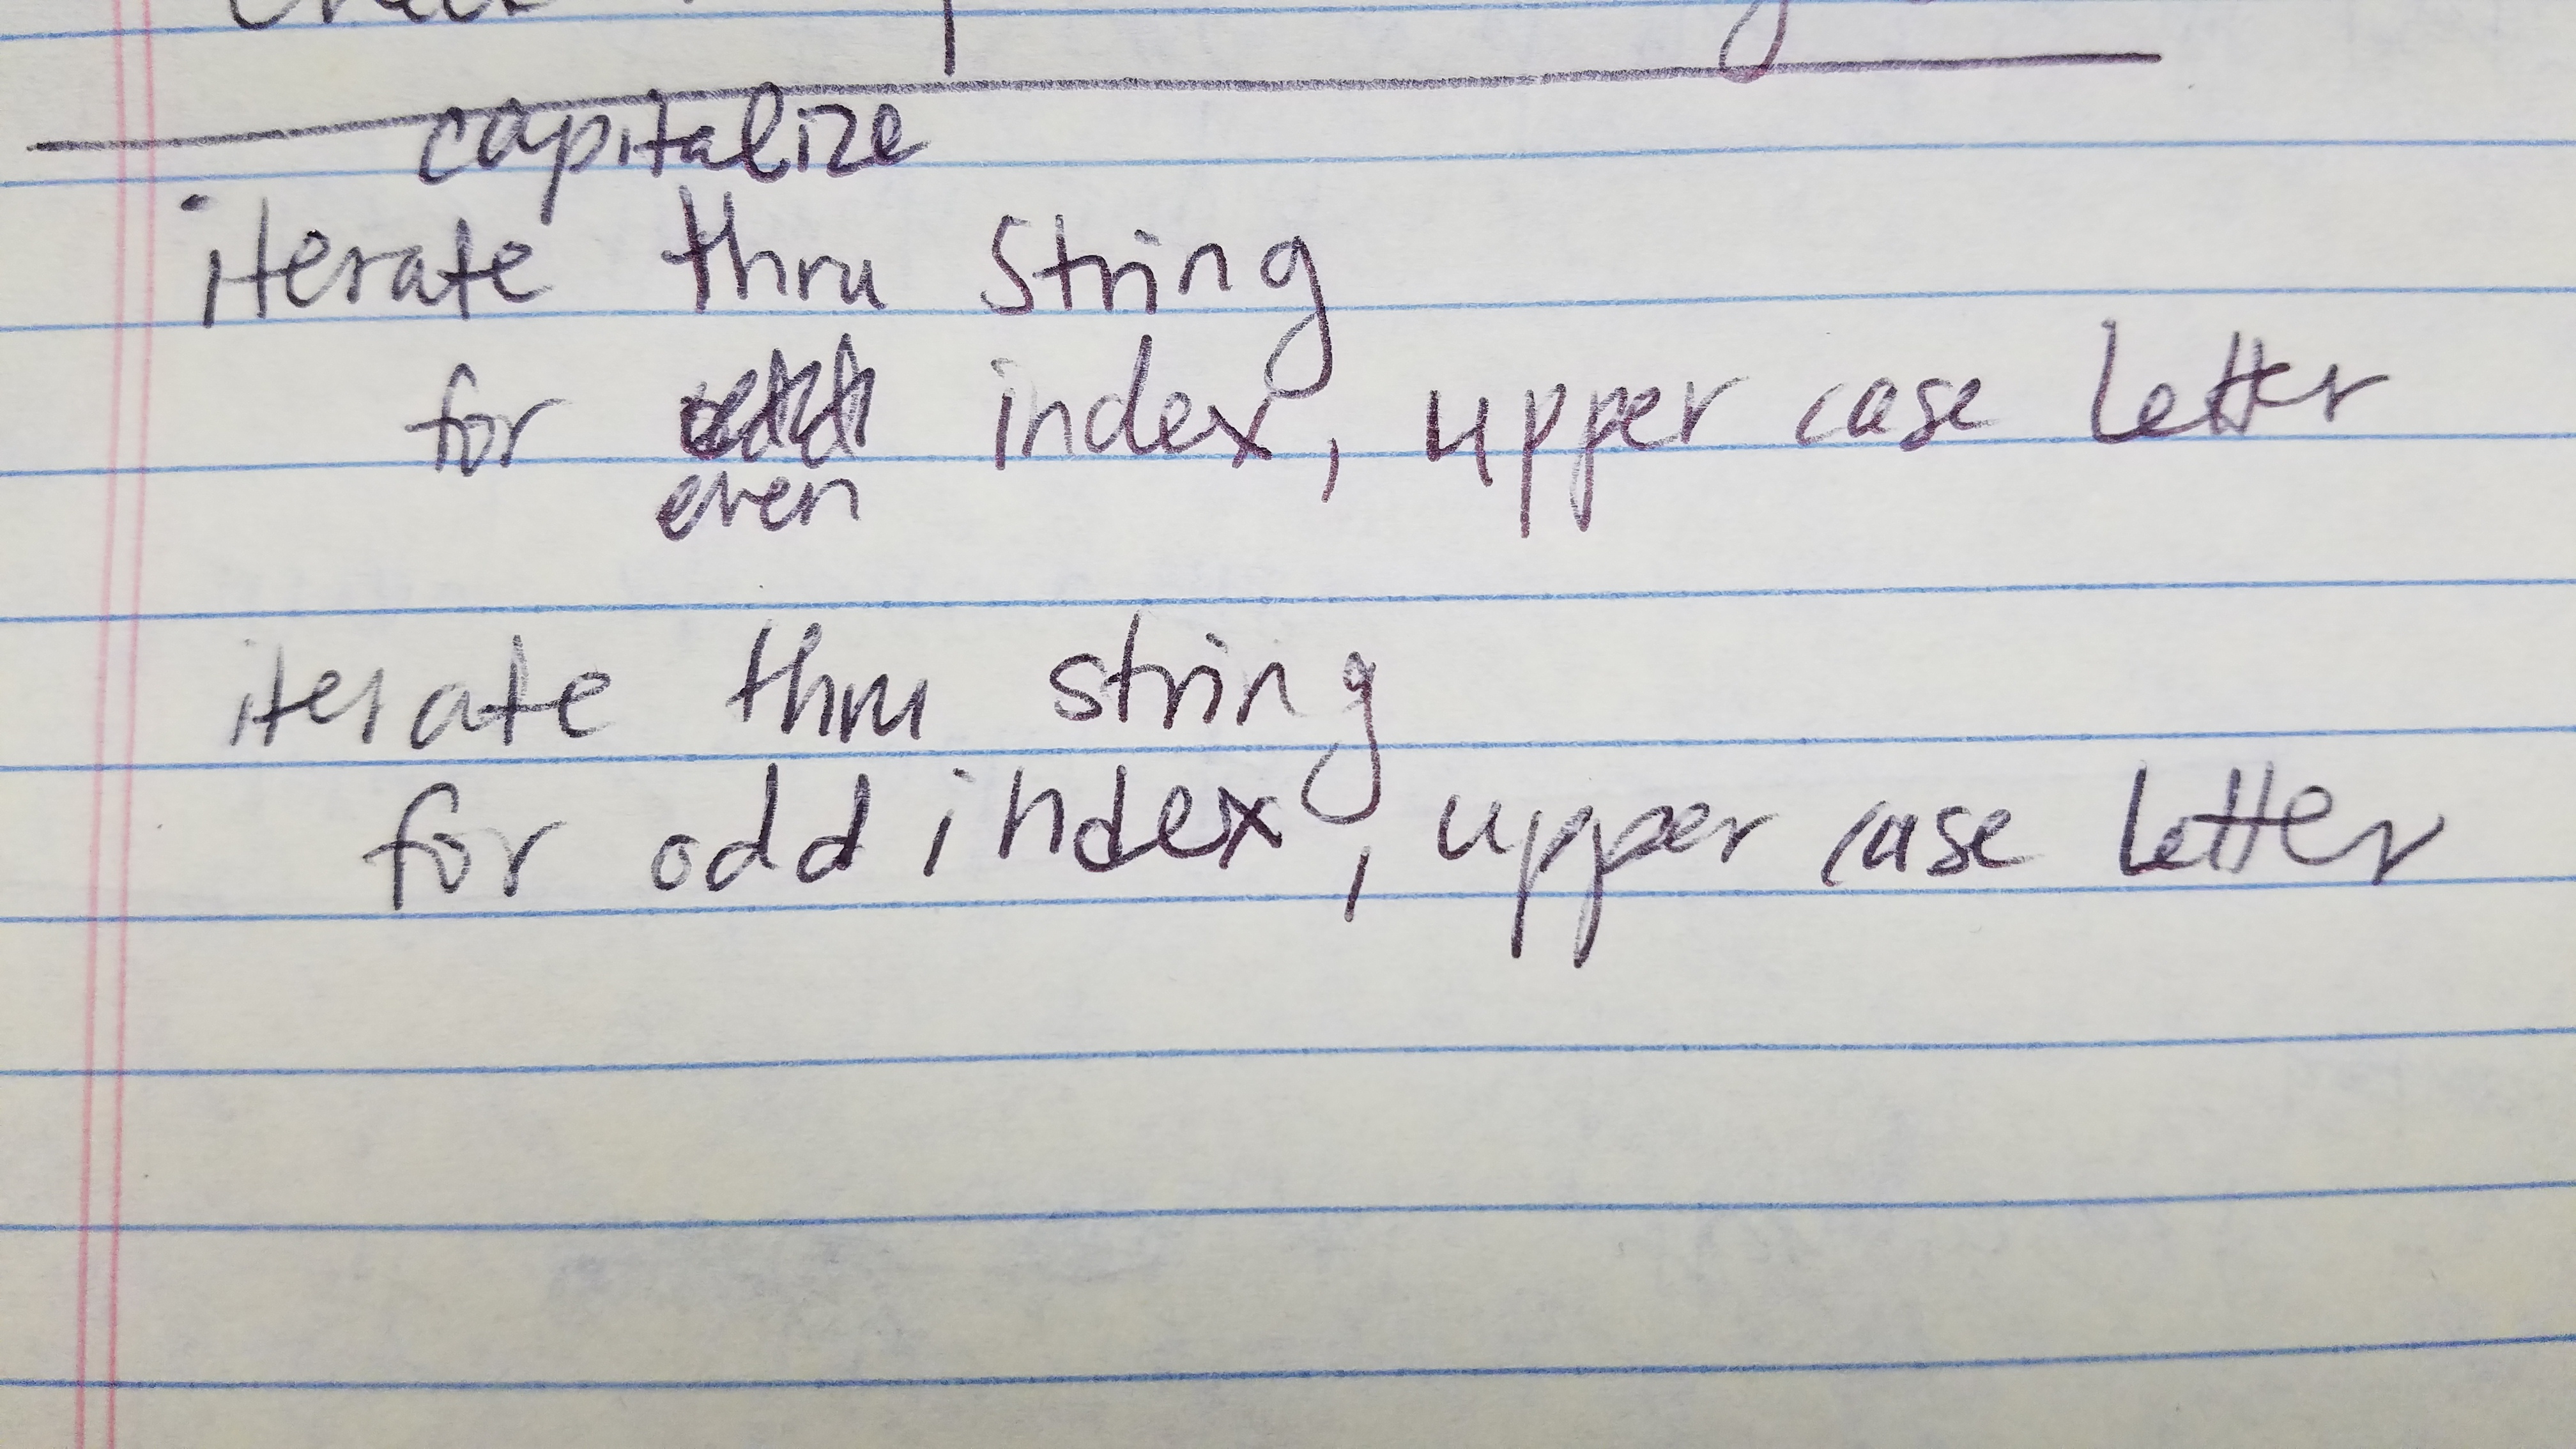 capitalize
iterate thru string
for index, upper case letter
even
iterate thru string
for odd index, upper case letter